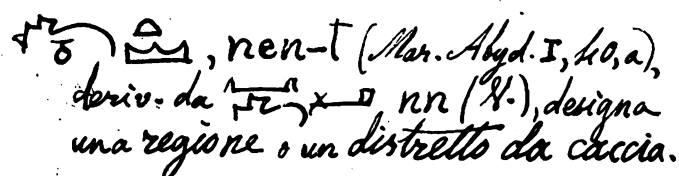 , nen-t (Mar. Abyd. I, 40, a),
deriv. da nn (N.), designa
una regione o un distretto da caccia.